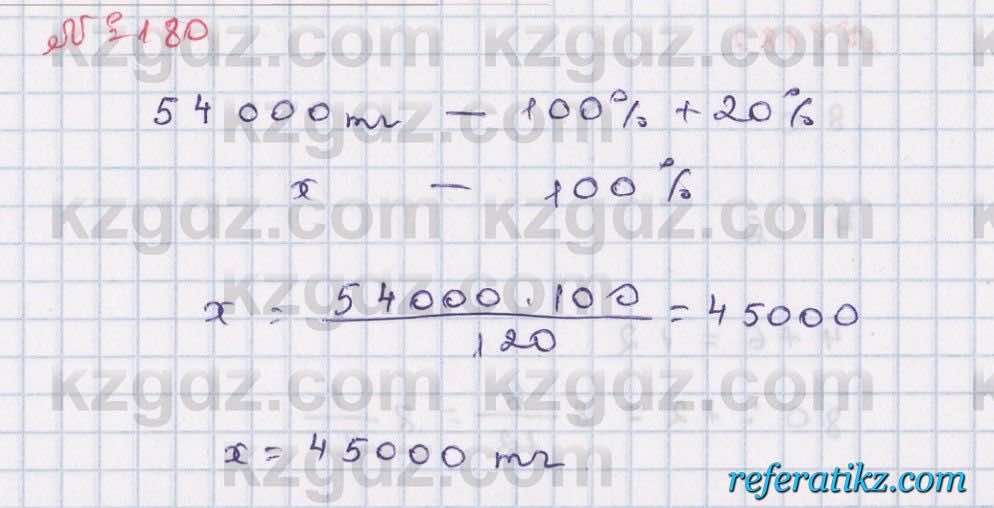 № 180
54000 тг — 100% + 20%
x — 100%
x = 54000 · 100 / 120 = 45000
x = 45000 тг
kzgdz.com
referatikz.com